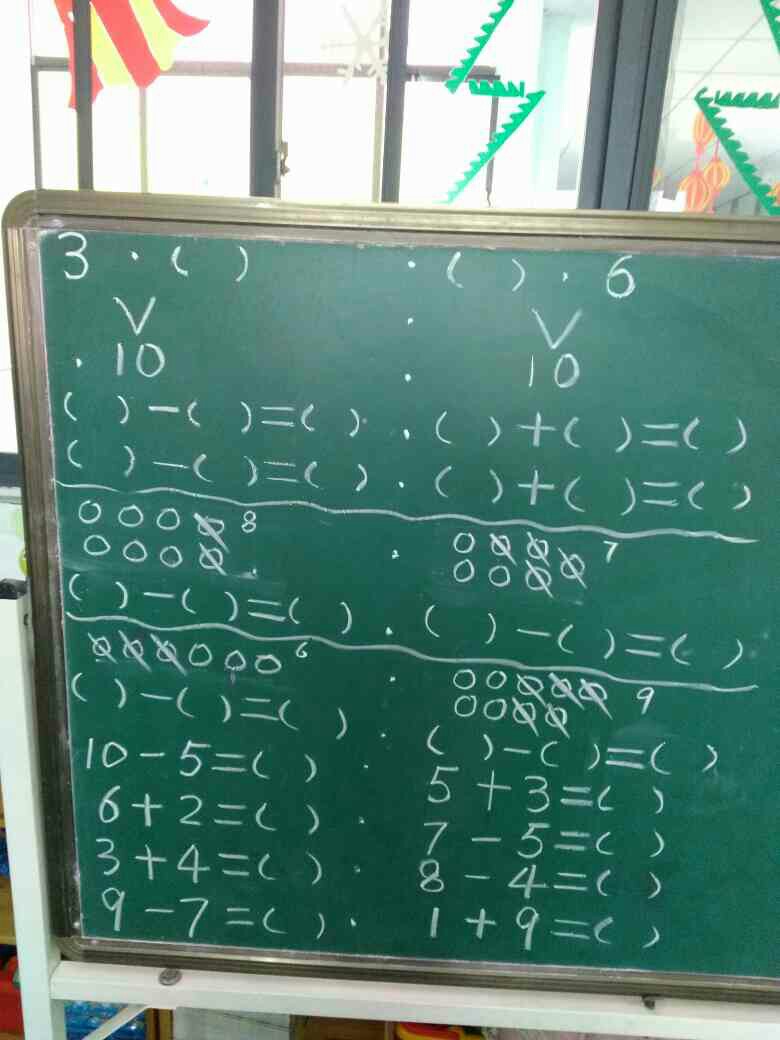 3 · ( ) · ( ) · 6
V · V
· 10 · 10
( ) - ( ) = ( ) · ( ) + ( ) = ( )
( ) - ( ) = ( ) · ( ) + ( ) = ( )
8
7
( ) - ( ) = ( ) · ( ) - ( ) = ( )
6
9
( ) - ( ) = ( ) · ( ) - ( ) = ( )
10 - 5 = ( ) · 5 + 3 = ( )
6 + 2 = ( ) · 7 - 5 = ( )
3 + 4 = ( ) · 8 - 4 = ( )
9 - 7 = ( ) · 1 + 9 = ( )